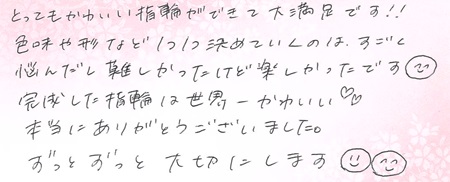 とってもかわいい指輪ができて大満足です!!
色味や形など1つ1つ決めていくのは、すごく
悩んだし難しかったけど楽しかったです
完成した指輪は世界一かわいい♡♡
本当にありがとうございました。
ずっとずっと大切にします